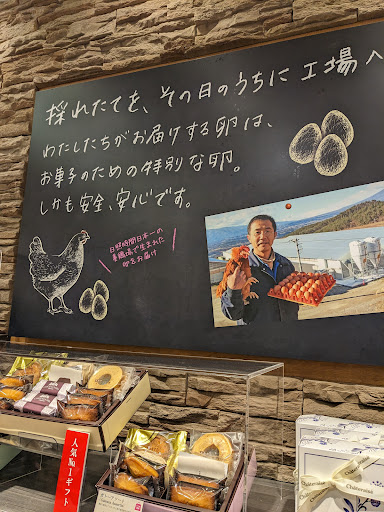 採れたてを、その日のうちに工場へ
わたしたちがお届けする卵は、
お菓子のための特別な卵。
しかも安全、安心です。
日照時間日本一の
養鶏場で生まれた
卵をお届け
人気No.1ギフト
Châteraisé